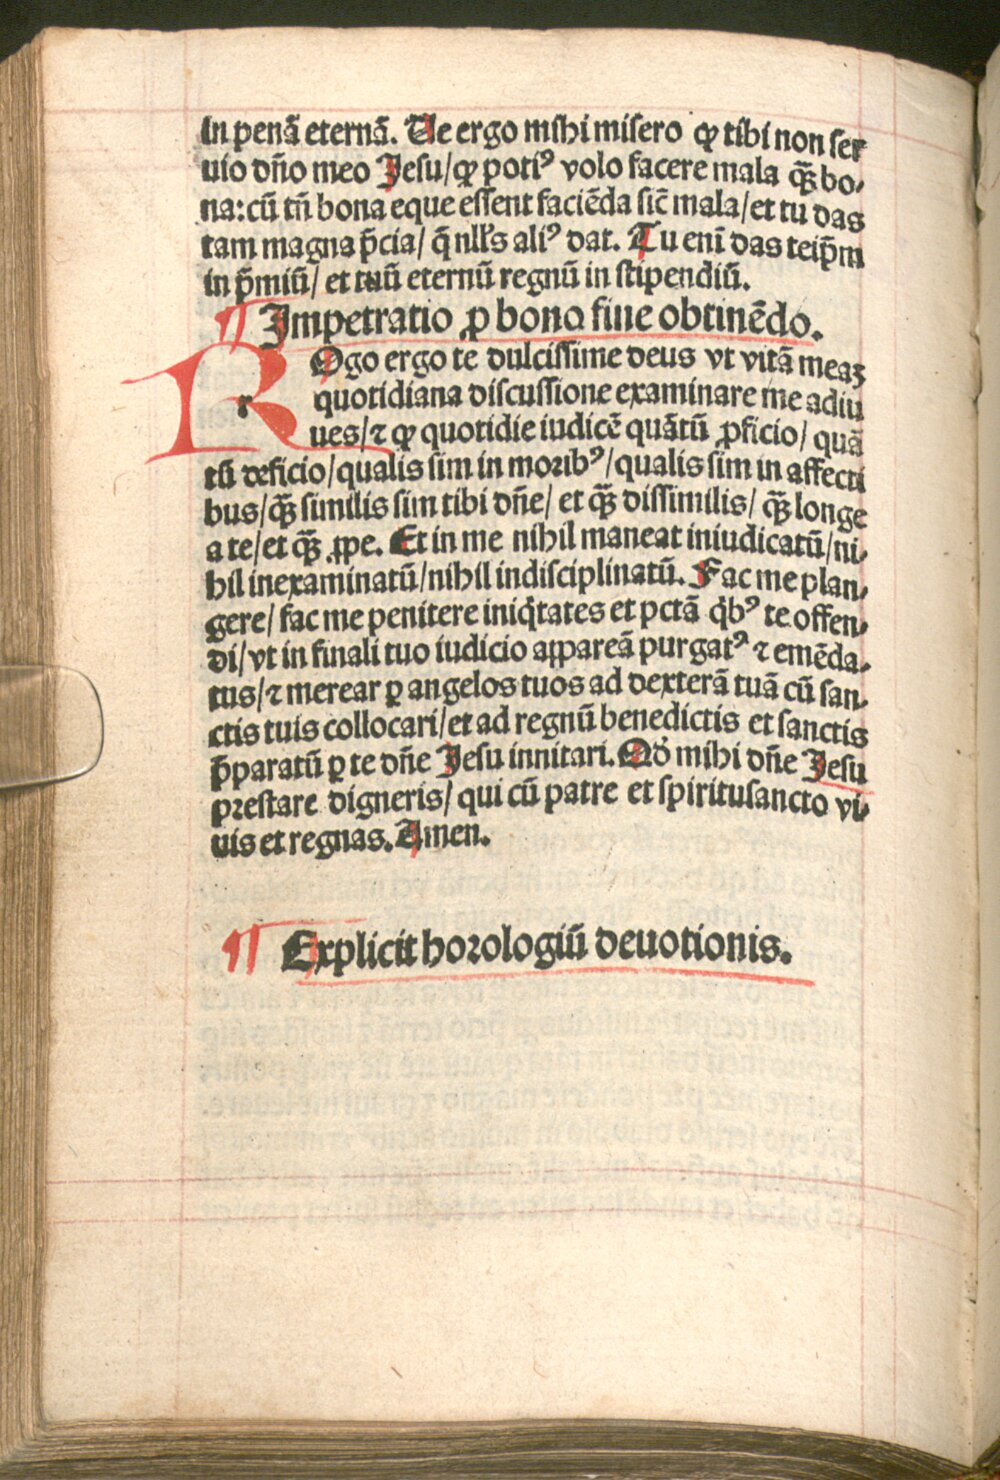 in penā eternā. Ue ergo mihi misero qꝛ tibi non ser
uio dño meo Jesu/qꝛ potiꝰ volo facere mala q̄ꝫ bo-
na: cū tñ bona eque essent faciēda sic̄ mala/et tu das
tam magna p̄cia/ q̄ nlꝉs aliꝰ dat. Tu eni᷒ das teip̄m
in p̄miū/ et tuū eternū regnū in stipendiū.
¶ Impetratio ꝓ bono fine obtinēdo.
R Ogo ergo te dulcissime deus vt vitā meaꝫ
quotidiana discussione examinare me adiu
ues/⁊ qꝛ quotidie iudicē quātū ꝓficio/ quā
tū deficio/qualis sim in moribꝰ/qualis sim in affecti
bus/q̄ꝫ similis sim tibi dñe/ et q̄ꝫ dissimilis/ q̄ꝫ longe
a te/et q̄ꝫ ꝓpe. Et in me nihil maneat iniudicatū/ni-
hil inexaminatū/nihil indisciplinatū. Fac me plan-
gere/ fac me penitere iniq̇tates et pctā q̇bꝰ te offen-
di/vt in finali tuo iudicio appareā purgatꝰ ⁊ emēda-
tus/⁊ merear ꝑ angelos tuos ad dexterā tuā cū san-
ctis tuis collocari/et ad regnū benedictis et sanctis
p̄paratū ꝑ te dñe Jesu innitari. Qd̓ mihi dñe Jesu
prestare digneris/ qui cū patre et spiritusancto vi-
uis et regnas. Amen.
¶ Explicit horologiū deuotionis.